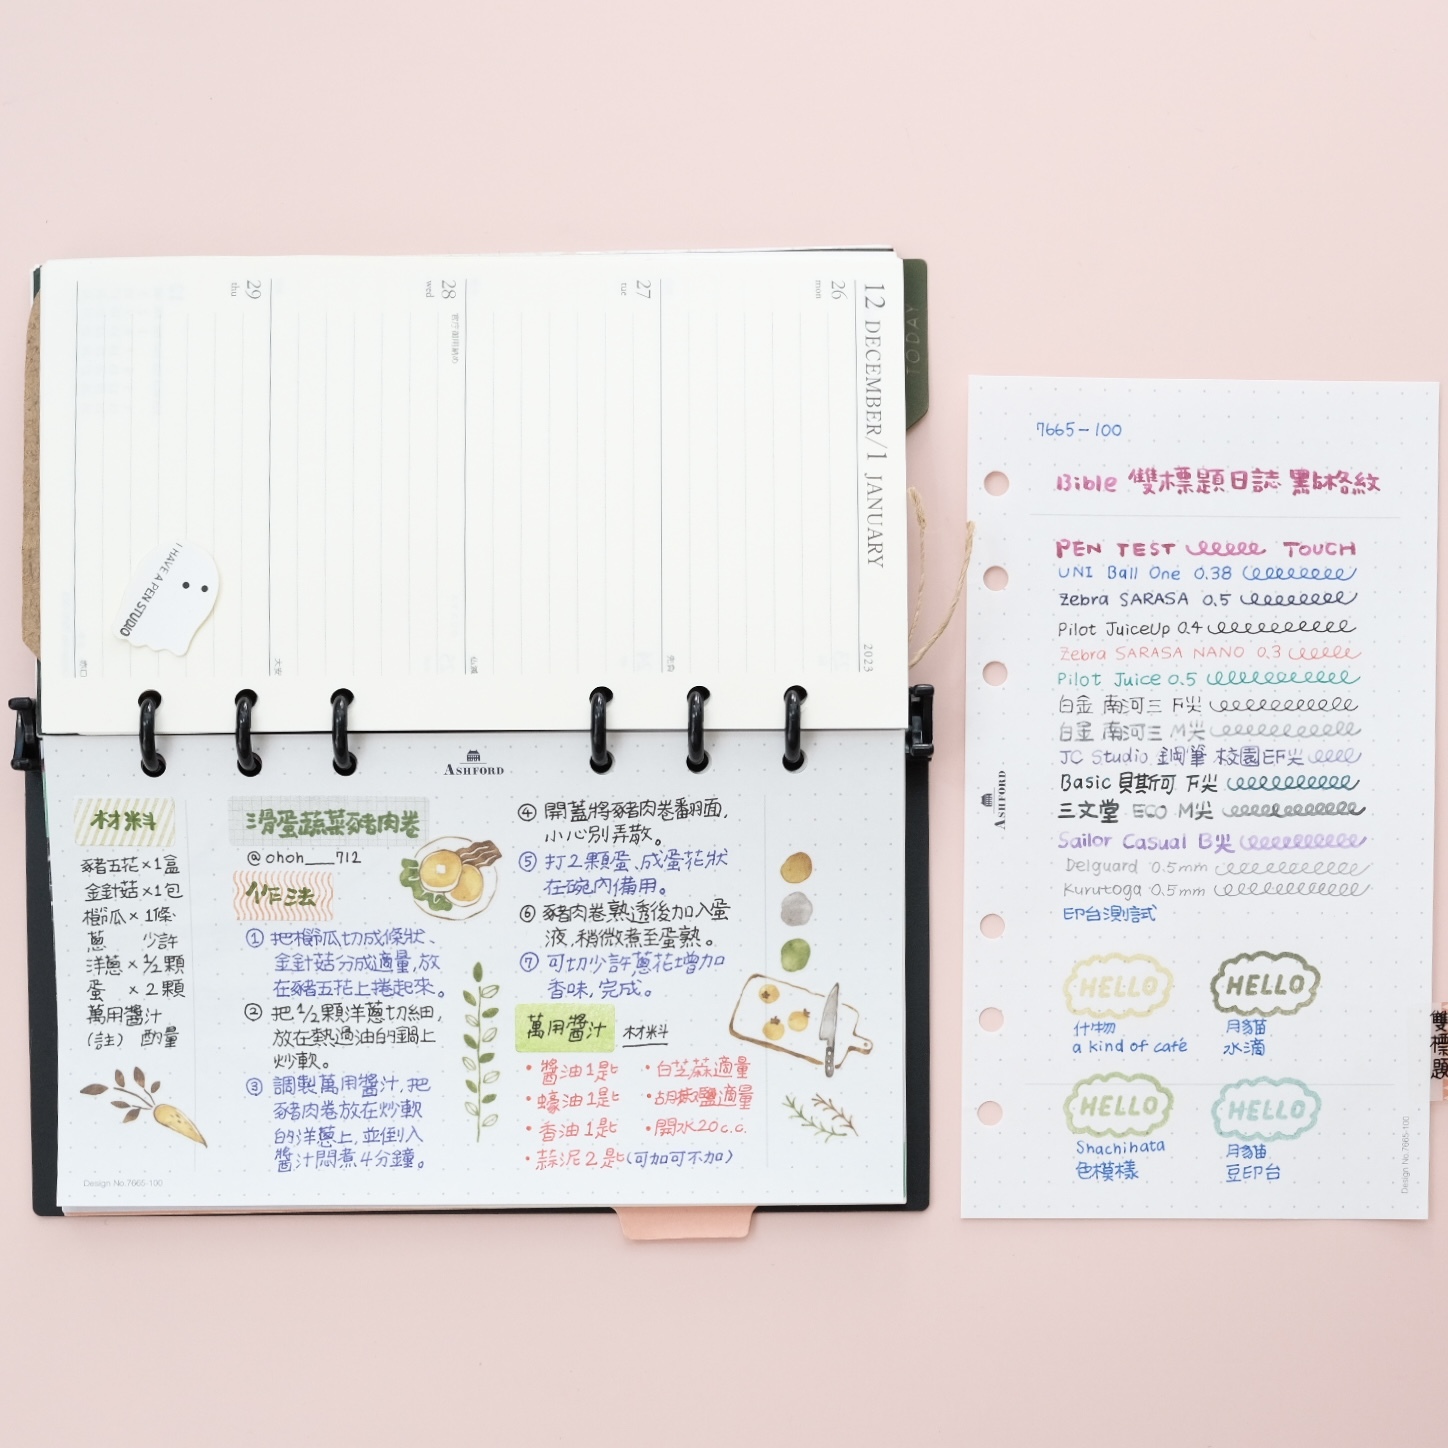 12 DECEMBER/1 JANUARY
2023
26
mon
27
tue
28
wed
29
thu
TODAY
I HAVE A PEN STUDIO
ASHFORD
材料
豬五花×1盒
金針菇×1包
櫛瓜×1條
蔥 少許
洋蔥×1/2顆
蛋 ×2顆
萬用醬汁
(註) 酌量
滑蛋蔬菜豬肉卷
@ohoh___712
作法
① 把櫛瓜切成條狀、
金針菇分成適量,放
在豬五花上捲起來。
② 把1/2顆洋蔥切細,
放在熱過油的鍋上
炒軟。
③ 調製萬用醬汁,把
豬肉卷放在炒軟
的洋蔥上,並倒入
醬汁悶煮4分鐘。
④ 開蓋將豬肉卷翻面,
小心別弄散。
⑤ 打2顆蛋、成蛋花狀
在碗內備用。
⑥ 豬肉卷熟透後加入蛋
液,稍微煮至蛋熟。
⑦ 可切少許蔥花增加
香味,完成。
萬用醬汁 材料
・醬油1匙 ・白芝麻適量
・蠔油1匙 ・胡椒鹽適量
・香油1匙 ・開水20c.c.
・蒜泥2匙(可加可不加)
Design No.7665-100
7665-100
Bible 雙標題日誌 點格紋
PEN TEST TOUCH
UNI Ball One 0.38
Zebra SARASA 0.5
Pilot JuiceUp 0.4
Zebra SARASA NANO 0.3
Pilot Juice 0.5
白金 南河三 F尖
白金 南河三 M尖
JC Studio 鋼筆 校園EF尖
Basic 貝斯可 F尖
三文堂 ECO M尖
Sailor Casual B尖
Delguard 0.5mm
Kurutoga 0.5mm
印台測試
HELLO
什物
a kind of café
HELLO
月貓
水滴
HELLO
Shachihata
色模樣
HELLO
月貓
豆印台
ASHFORD
Design No.7665-100
雙標題